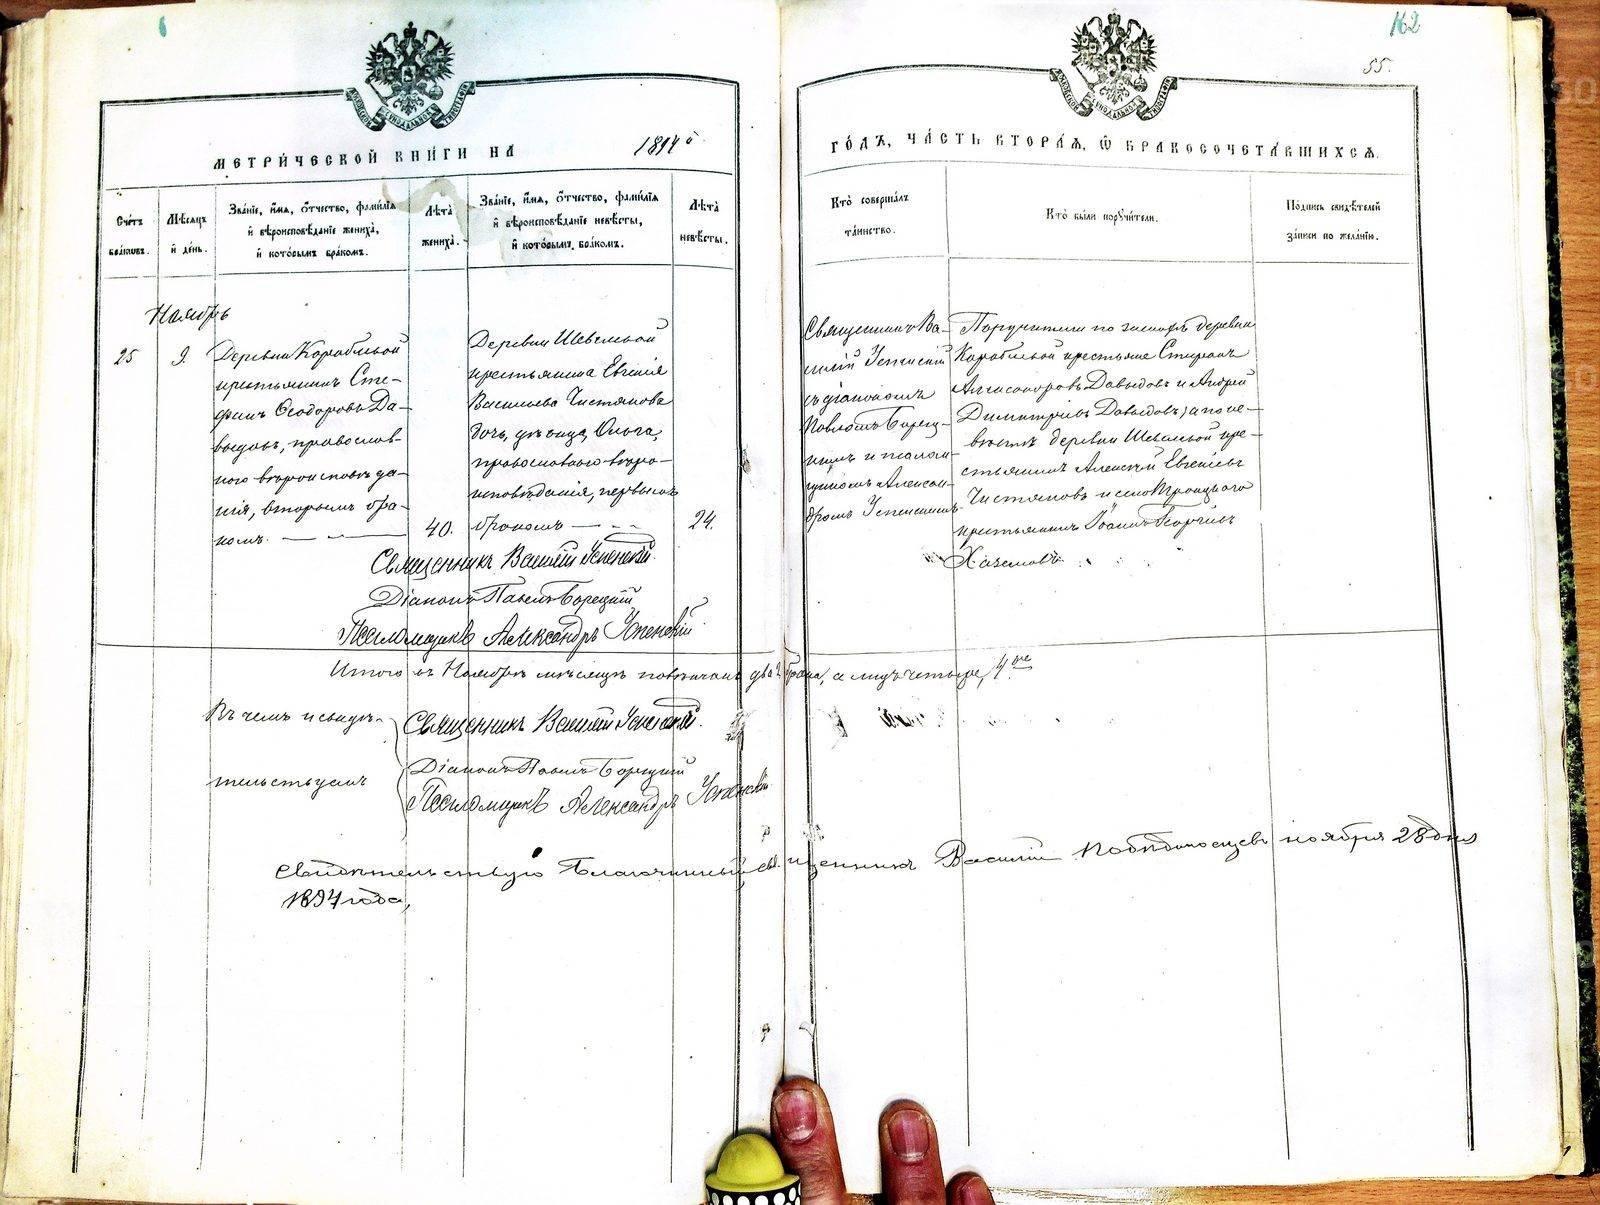 162
55.
МОСКОВСКОЙ СѴНОДАЛЬНОЙ ТИПОГРАФІИ
МОСКОВСКОЙ СѴНОДАЛЬНОЙ ТИПОГРАФІИ
МЕТРИ́ЧЕСКОЙ КНИ́ГИ НА 1894й
ГО́ДЪ, ЧА́СТЬ ВТОРА́Я, Ѽ БРАКОСОЧЕТА́ВШИХСЯ.
Сче́тъ
бра́ковъ.
Мѣ́сяцъ
и де́нь.
Зва́ніе, и́мя, о́тчество, фами́лія
и вѣроисповѣ́даніе жениха̀,
и кото́рымъ бра́комъ.
Лѣ́та
жениха̀.
Зва́ніе, и́мя, о́тчество, фами́лія
и вѣроисповѣ́даніе невѣ́сты,
и кото́рымъ бра́комъ.
Лѣ́та
невѣ́сты.
Кто̀ соверша́лъ
та́инство.
Кто̀ бы́ли поручи́тели.
По́дпись свидѣ́телей
за́писи по жела́нію.
Ноябрь
25
9.
Деревни Корабельной
крестьянинъ Сте-
фанъ Ѳеодоровъ Да-
выдовъ, православ-
наго вѣроисповѣда-
нія, вторымъ бра-
комъ.
40.
Деревни Шевельной
крестьянина Евгенія
Васильева Чистякова
дочь, дѣвица, Ольга,
православнаго вѣро-
исповѣданія, первымъ
бракомъ
24.
Священникъ Ва-
силій Успенскій
съ діакономъ
Павломъ Борец-
кимъ и псалом-
щикомъ Алексан-
дромъ Успенскимъ.
Поручители по женихѣ деревни
Корабельной крестьяне Стефанъ
Давыдовъ и Андрей
Димитріевъ Давыдовъ; а по не-
вѣстѣ деревни Шевельной кре-
стьянинъ Алексѣй Евгеніевъ
Чистяковъ и села Троицкаго
крестьянинъ Іоаннъ Георгіевъ
Священникъ Василій Успенскій.
Діаконъ Павелъ Борецкій
Псаломщикъ Александръ Успенскій
Итого въ Ноябрѣ мѣсяцѣ повѣнчано два 2 брака, а лицъ четыре, 4ре
Въ чемъ и свидѣ-
тельствуемъ
Священникъ Василій Успенскій.
Діаконъ Павелъ Борецкій
Псаломщикъ Александръ Успенскій
Свидѣтельствую Благочинный священникъ Василій Побѣдоносцевъ ноября 28 дня
1894 года,